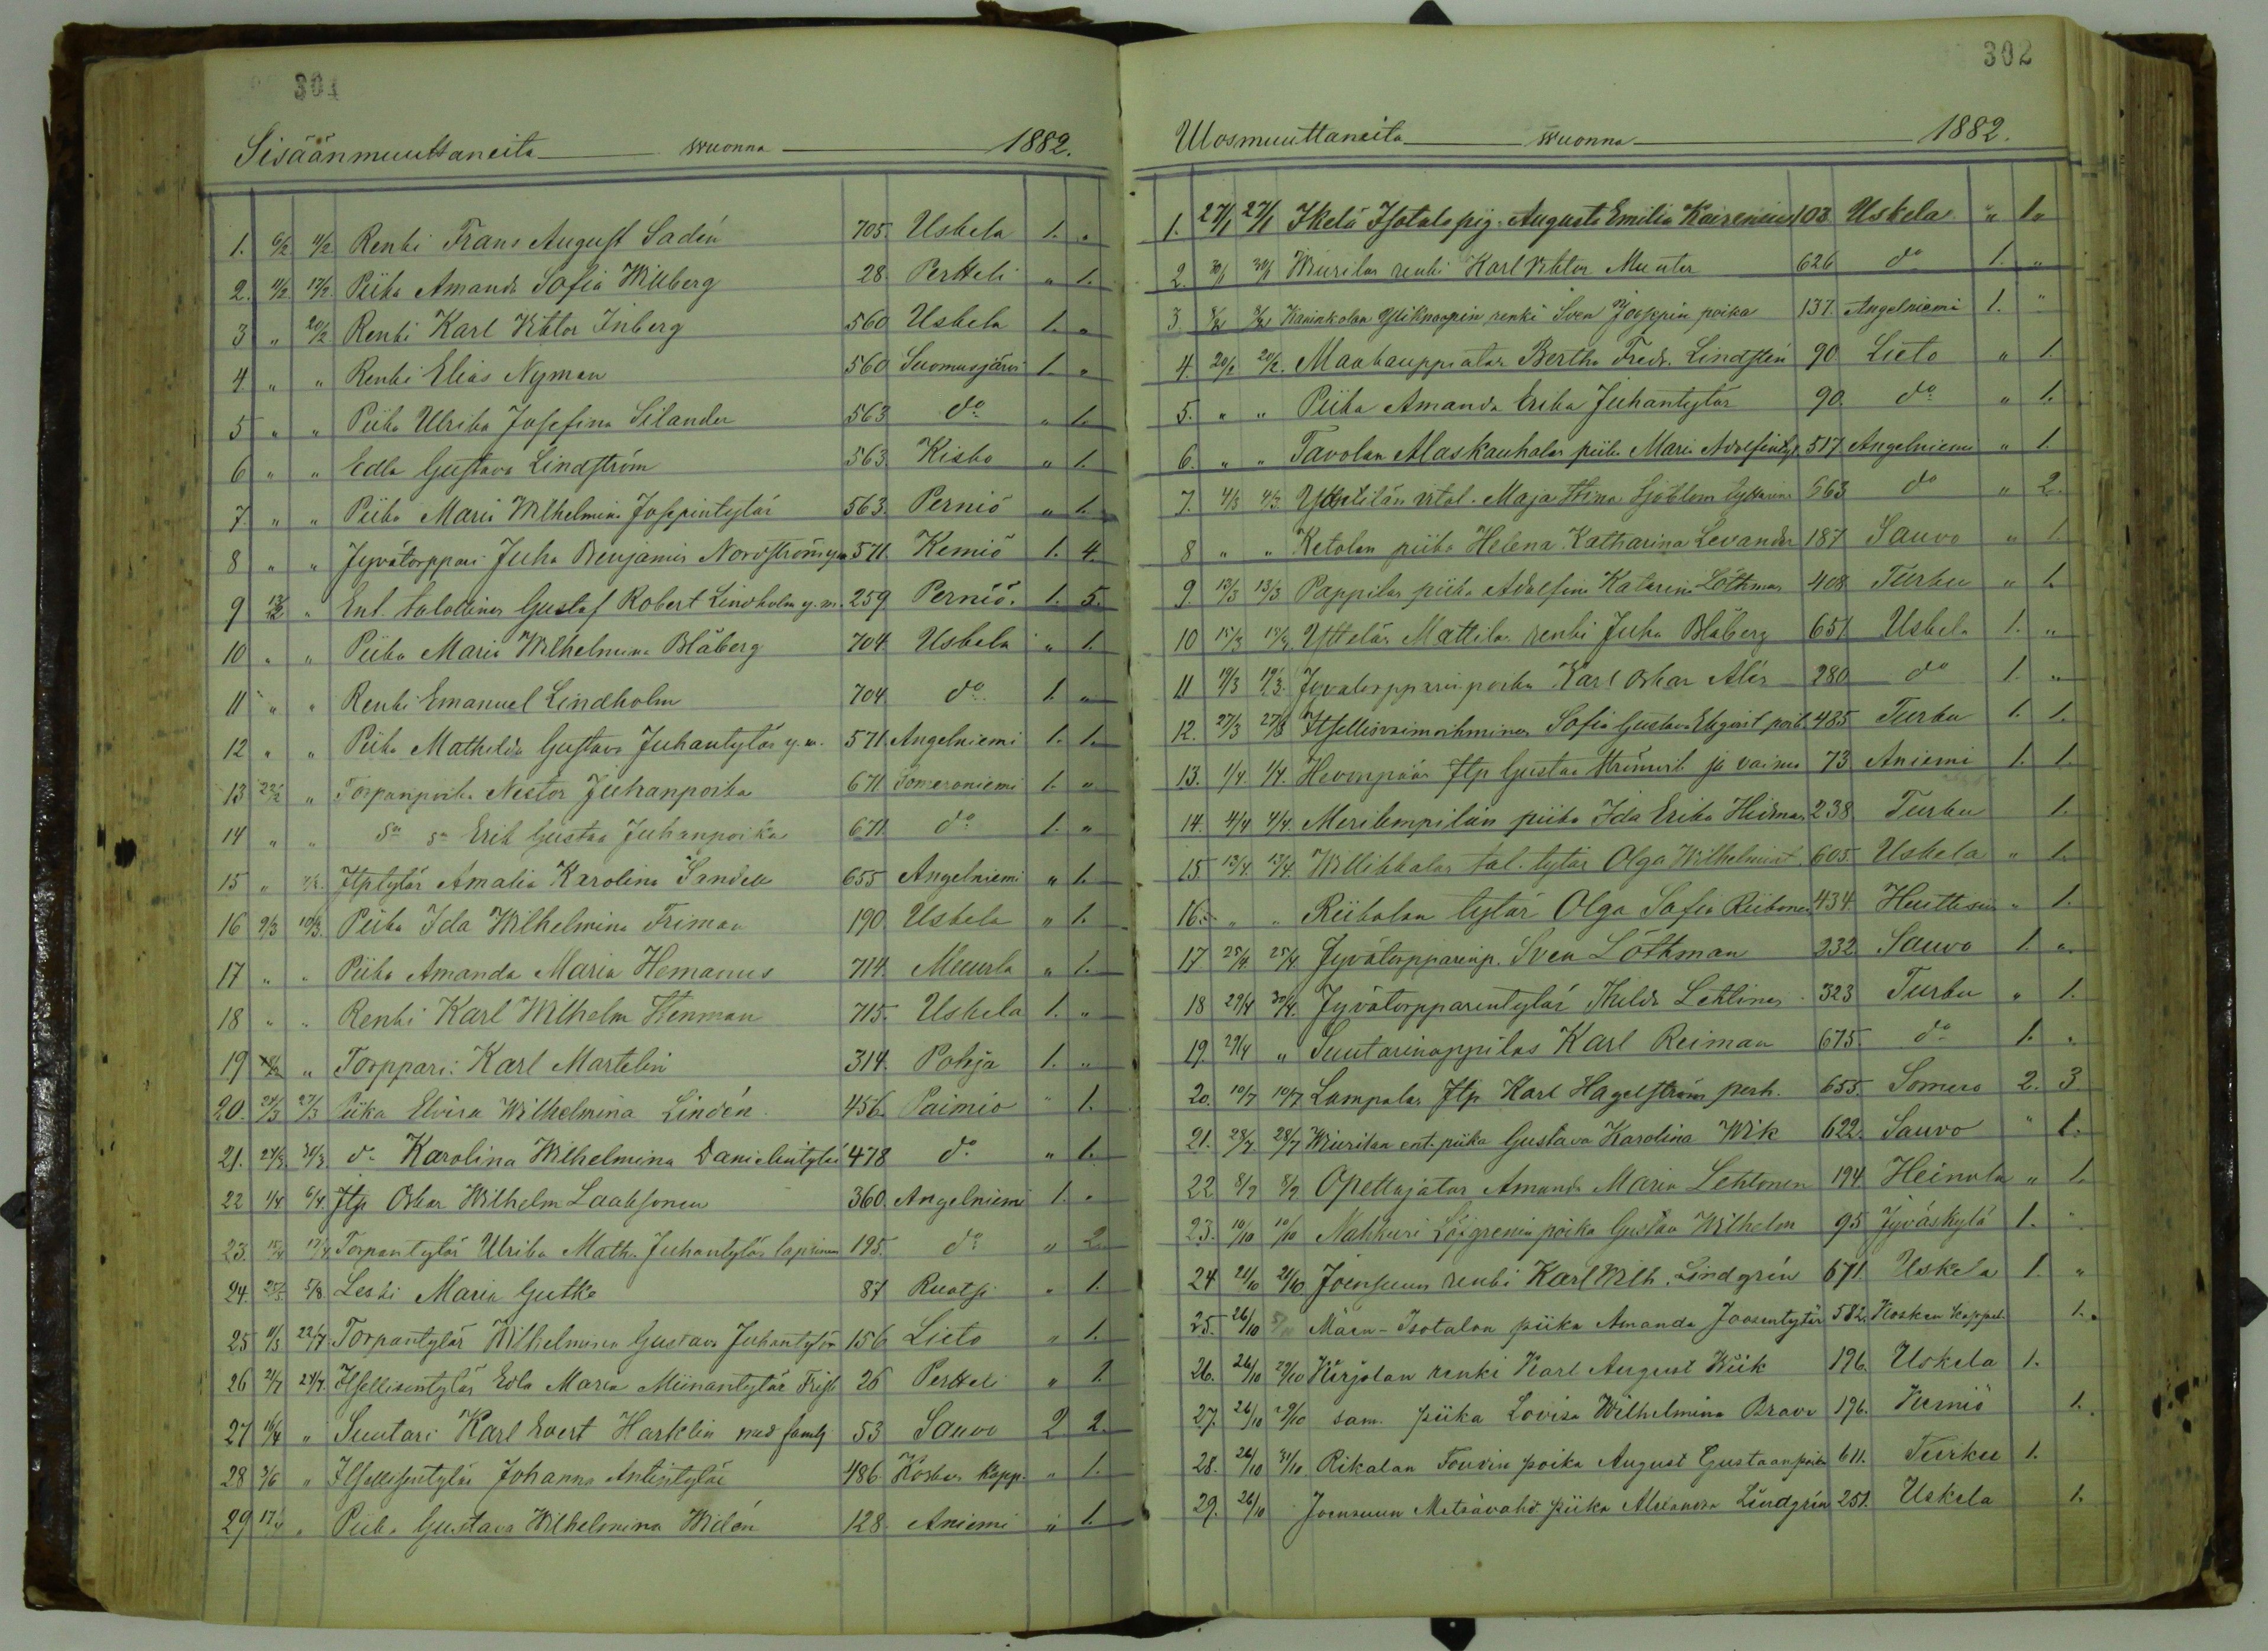 301
Sisäänmuuttaneita wuonna 1882.
1. 6/2 11/2 Renki Frans August Sadén 705. Uskela 1. "
2. 11/2 12/2 Piika Amanda Sofia Willberg 28 Pertteli " 1.
3 " 20/2 Renki Karl Viktor Inberg 560 Uskela 1. "
4 " " Renki Elias Nyman 560 Suomusjärvi 1. "
5 " " Piika Ulrika Josefina Silander 563 do " 1.
6 " " Edla Gustava Lindström 563. Kisko " 1.
7. " " Piika Maria Wilhelmina Josepintytär 563. Perniö " 1.
8 " " Jyvätorppari Juha Benjamin Nordström y.m. 571. Kemiö 1. 4.
9 " Ent. talollinen Gustaf Robert Lindholm y.m. 259 Perniö. 1. 5.
10 " " Piika Maria Wilhelmina Blåberg 704. Uskela " 1.
11 " " Renki Emanuel Lindholm 704. do 1. "
12 " " Piika Mathilda Gustava Juhantytär y.m. 571. Angelniemi 1. 1.
13 22/2 " Torpanpoika Nestor Juhanpoika 671. Someroniemi 1. "
14 " " do do Erik Gustaa Juhanpoika 671. do 1. "
15 " Itp tytär Amalia Karolina Sandell 655 Angelniemi " 1.
16 9/3 10/3. Piika Ida Wilhelmina Friman 190. Uskela " 1.
17 " " Piika Amanda Maria Hemanus 714. Muurla " 1.
18 " " Renki Karl Wilhelm Stenman 715. Uskela 1. "
19 " Torppari Karl Martelin 314. Pohja 1. "
20. 24/3 27/3 Piika Elvira Wilhelmina Lindén 456. Paimio " 1.
21. 24/3 30/3 do Karolina Wilhelmina Danielintytär 478 do " 1.
22 1/4 6/4. Itp Oskar Wilhelm Laaksonen 360. Angelniemi 1. "
23. 15/4 17/4 Torpantytär Ulrika Math. Juhantytär lapsinen 195. do " 2.
24. 5/8. Leski Maria Gutke 87 Ruotsi " 1.
25 22/7. Torpantytär Wilhelmina Gustava Juhantytär 156 Lieto " 1.
26 24/7. Itsellisentytär Edla Maria Miinantytär 26 Pertteli " 1
27 " Suutari Karl Evert Harklin med familj 53 Sauvo 2 2.
28 " Itsellisentytär Johanna Antintytär 486. Kosken Kapp. " 1.
29 " Piika Gustava Wilhelmina Widén 128. Aniemi " 1.
302
Ulosmuuttaneita wuonna 1882.
1. 27/1 27/1 Ikelä Isotalo pig. Augusta Emilia Kairenius 103. Uskela " 1.
2. 30/1 30/1 Wiurilan renki Karl Viktor Munter 626 do 1. "
3. Kaninkolan Yliknaapin renki Sven Josepin poika 137. Angelniemi 1. "
4. 20/2 20/2. Maakauppiatar Bertha Fredr. Lindstén 90. Lieto " 1.
5. " " Piika Amanda Erika Juhantytär 90. do " 1.
6. " " Tavolan Alaskauhalan piika Maria Adolfint. 517. Angelniemi " 1.
7. 4/3 4/3. Maja Stina Sjöblom tyttärine 563 do " 2.
8 " " Ketolan piika Helena Katharina Levander 187 Sauvo " 1.
9. 13/3 13/3 Pappilan piika Adolfina Katarina Löthman 408. Turku " 1.
10 15/3 15/3. Yttelän Mattilan renki Juha Blåberg 657. Uskela 1. "
11 19/3 19/3. Jyvätorpparinpoika Karl Oskar Alén 280 do 1. "
12. 27/3 27/3 Itsellisvaimoihminen Sofia Gustava poik. 485 Turku 1. 1.
13. 1/4. 1/4. Hevonpään Itp Gustaa ja vaimo 73 Aniemi 1. 1.
14. 4/4 4/4. Merikempilän piika Ida Erika Hidman 238. Turku 1.
15 13/4. 13/4. Willikkalan tal. tytär Olga Wilhelmiina 605. Uskela " 1.
16. " " Riikolan tytär Olga Sofia Riikonen 434. Huittisiin " 1.
17. 25/4. 25/4. Jyvätorpparinp. Sven Löthman 232. Sauvo 1. "
18 29/4 30/4. Jyvätorpparintytär Hilda Lehtinen 323 Turku " 1.
19. 29/4 " Suutarinoppilas Karl Reiman 675. do 1. "
20. 10/7 10/7 Lampolan Itp Karl Hagelström perh. 655. Somero 2. 3
21. 28/7 28/7 Wiurilan ent. piika Gustava Karolina Wik 622. Sauvo " 1.
22. 8/9 8/9 Opettajatar Amanda Maria Lehtonen 194 Heinola " 1.
23. 10/10 10/10 Nahkuri Löfgrenin poika Gustaa Wilhelm 95 Jyväskylä 1. "
24 21/10 21/10. Joensuun renki Karl Wilh. Lindgrén 671. Uskela 1. "
25. 26/10 Mäen-Isotalon piika Amanda Joosentytär 582. Kosken kappel. 1.
26. 26/10 29/10 Kärjolan renki Karl August Wiik 196. Uskela 1.
27. 26/10 29/10 sam. piika Lovisa Wilhelmina Bravo 196. Kemiö 1.
28. 26/10 31/10. Rikalan Fouvin poika August Gustaanpoika 611. Turku 1.
29. 26/10 Joensuun Metsävahd. piika Alexandra Lindgrén 251. Uskela 1.